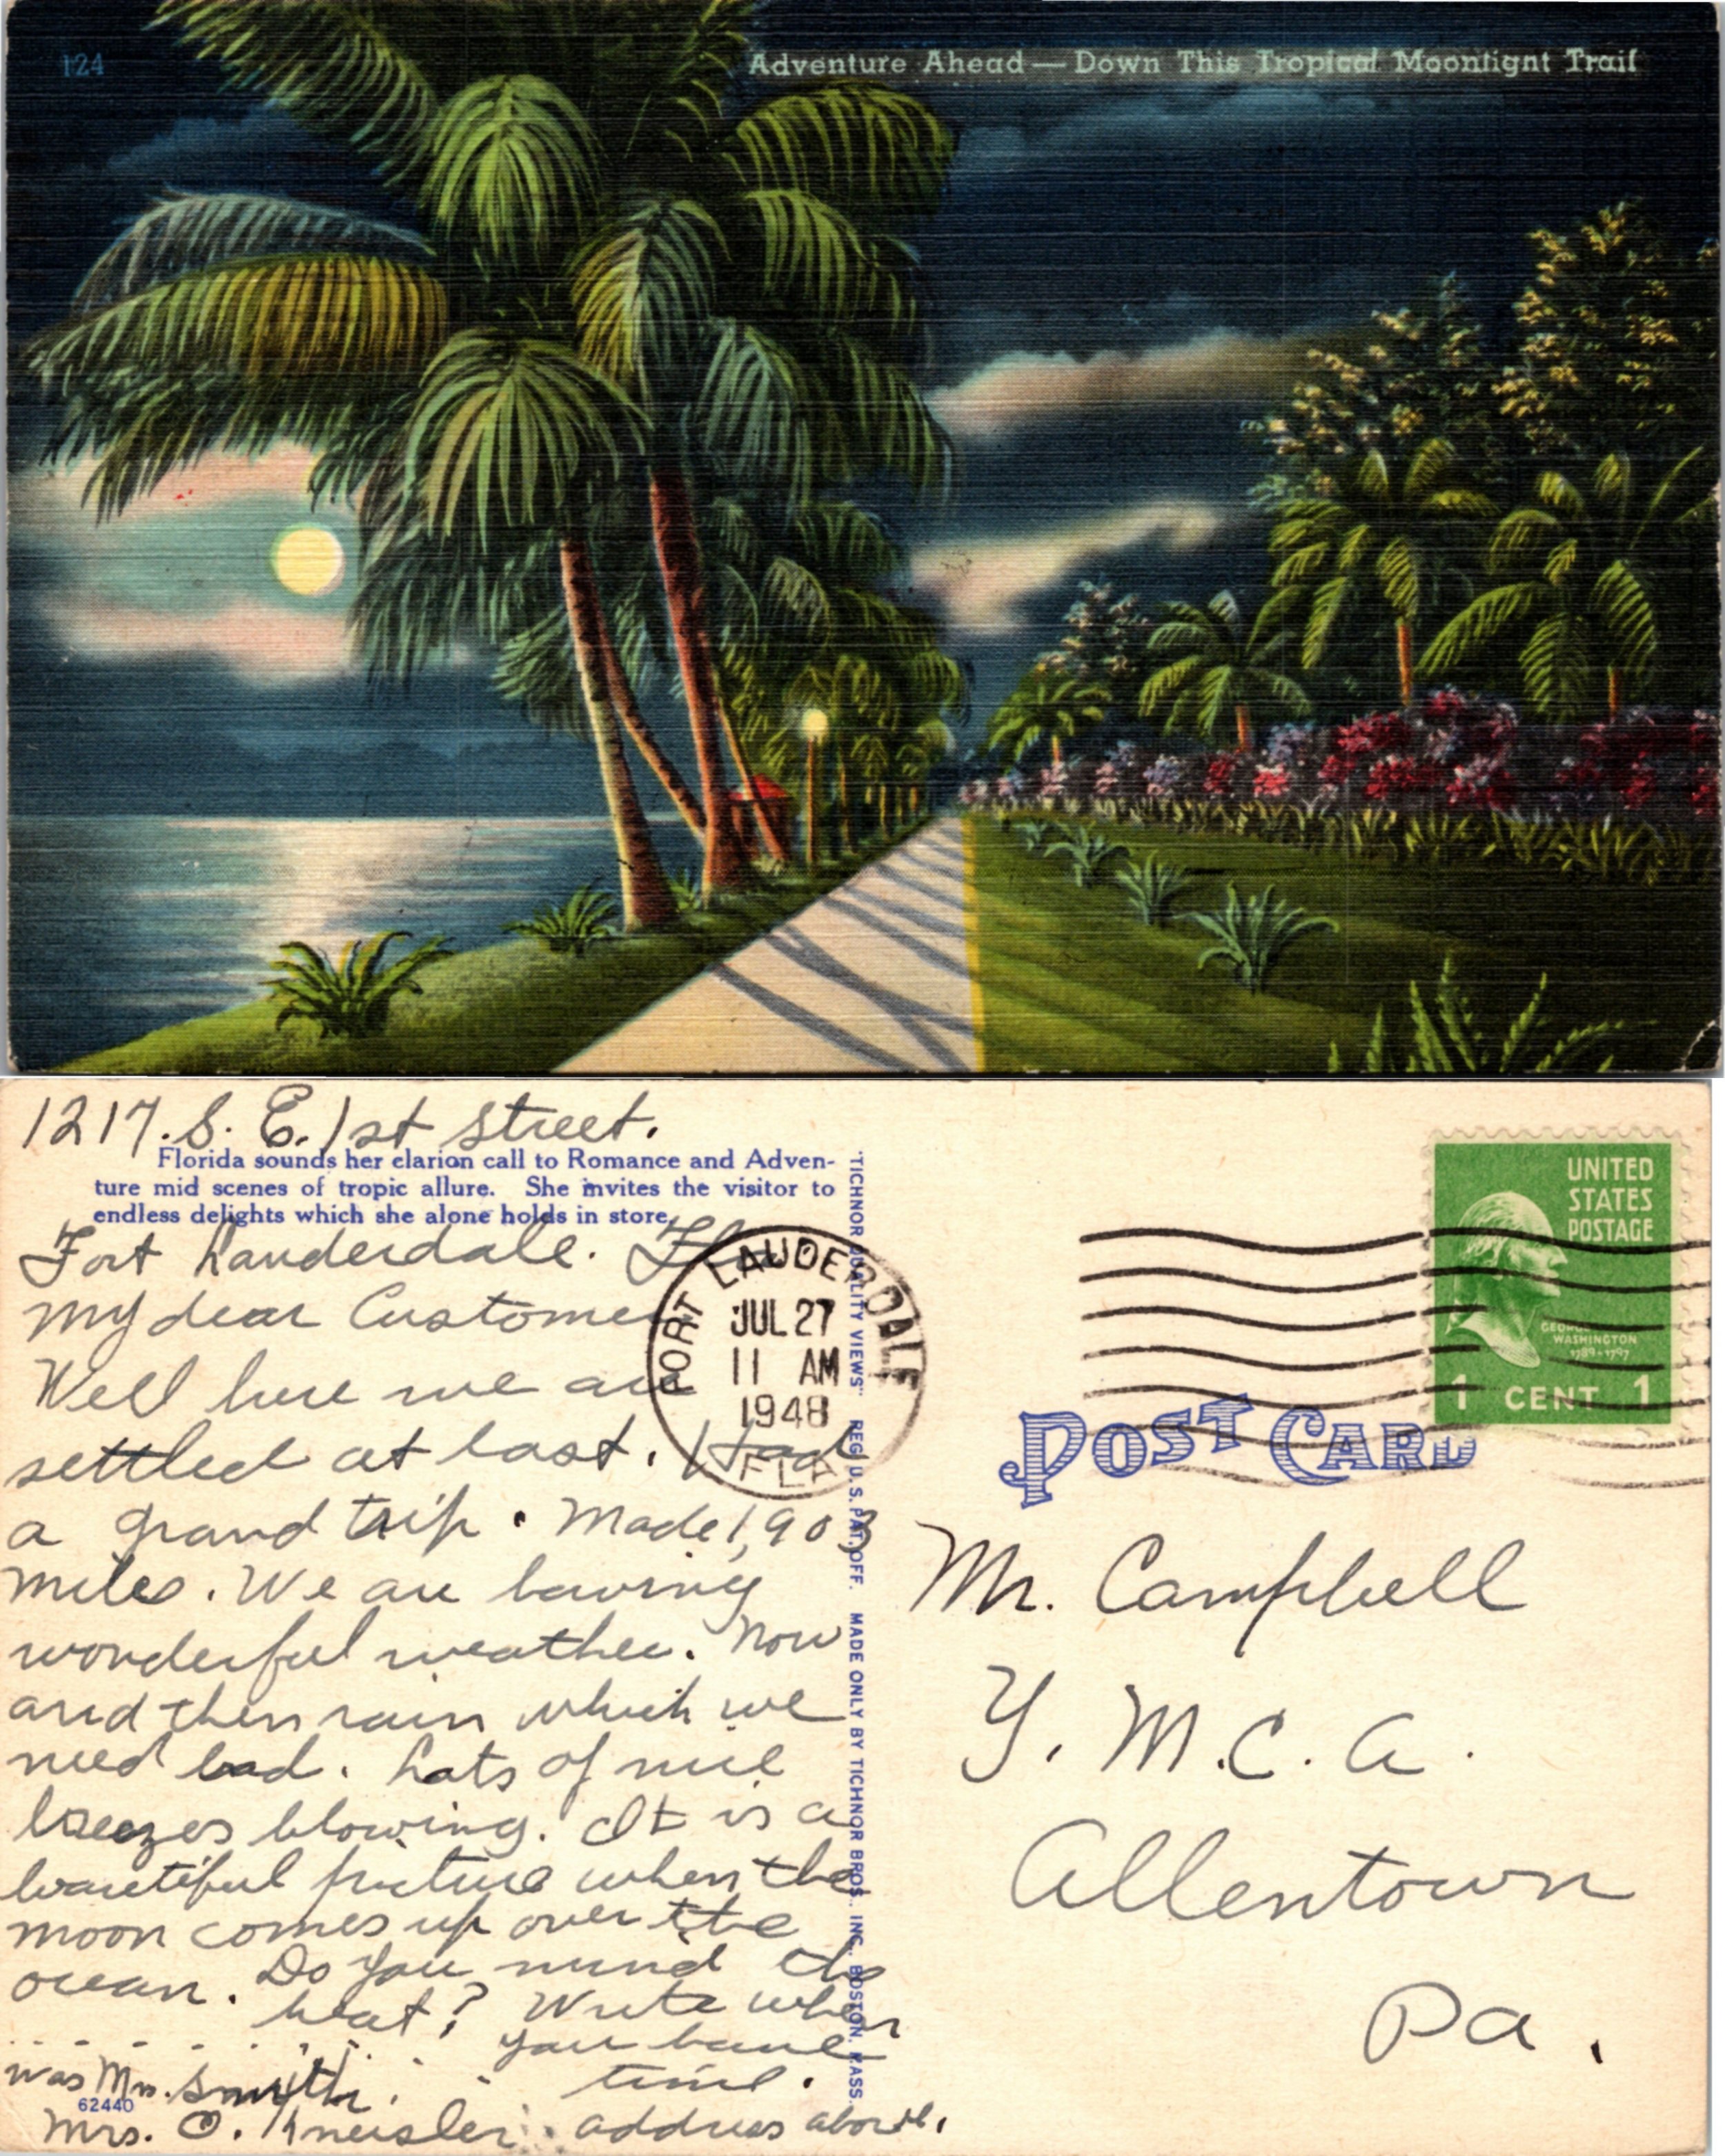 124
Adventure Ahead — Down This Tropical Moonlight Trail
1217. S. E. 1st street.
Florida sounds her clarion call to Romance and Adven-
ture mid scenes of tropic allure. She invites the visitor to
endless delights which she alone holds in store.
Fort Lauderdale. Fla
My dear Customer
Well here we are
settled at last. Had
a grand trip. Made 1,903
miles. We are having
wonderful weather. Now
and then rain which we
need bad. Lots of nice
breezes blowing. It is a
beautiful picture when the
moon comes up over the
ocean. Do you mind the
heat? Write when
you have
time.
was Mrs. Smyth.
62440
Mrs. O. Kneisler. address above.
"TICHNOR QUALITY VIEWS" REG. U.S. PAT. OFF. MADE ONLY BY TICHNOR BROS., INC., BOSTON, MASS.
FORT LAUDERDALE
JUL 27
11 AM
1948
FLA
UNITED
STATES
POSTAGE
GEORGE
WASHINGTON
1789-1797
1 CENT 1
POST CARD
Mr. Campbell
Y. M. C. A.
Allentown
Pa.